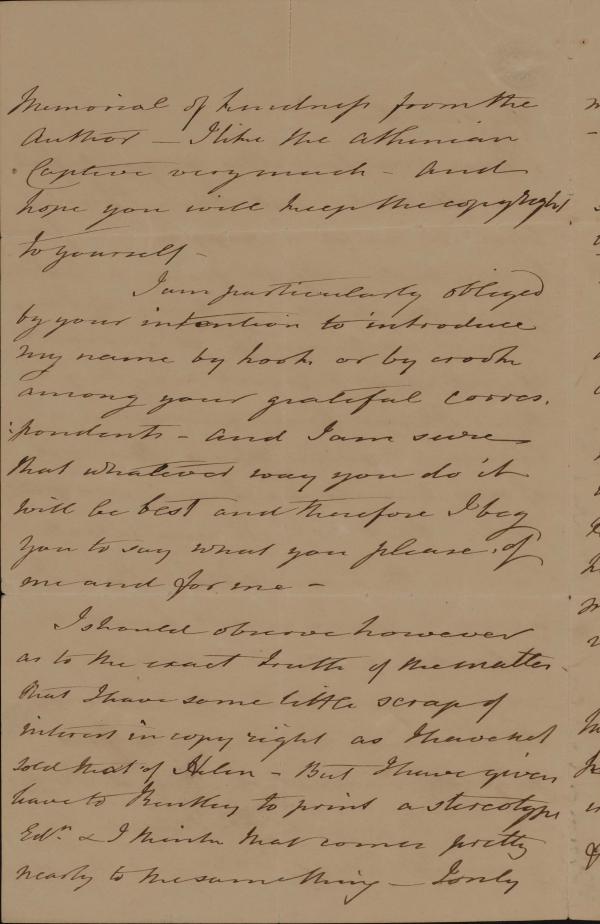 Memorial of kindness from the
Author — I like the Athenian
Captive very much — And
hope you will keep the copyright
to yourself —
I am particularly obliged
by your intention to introduce
my name by hook or by crook
among your grateful corres.
:pondents — and I am sure
that whatever way you do it
will be best and therefore I beg
you to say what you please of
me and for me —
I should observe however
as to the exact truth of the matter
that I have some little scrap of
interest in copy right as I have not
sold that of Helen — But I have given
leave to Bentley to print a stereotype
Edn. & I think that comes pretty
nearly to the same thing — I only